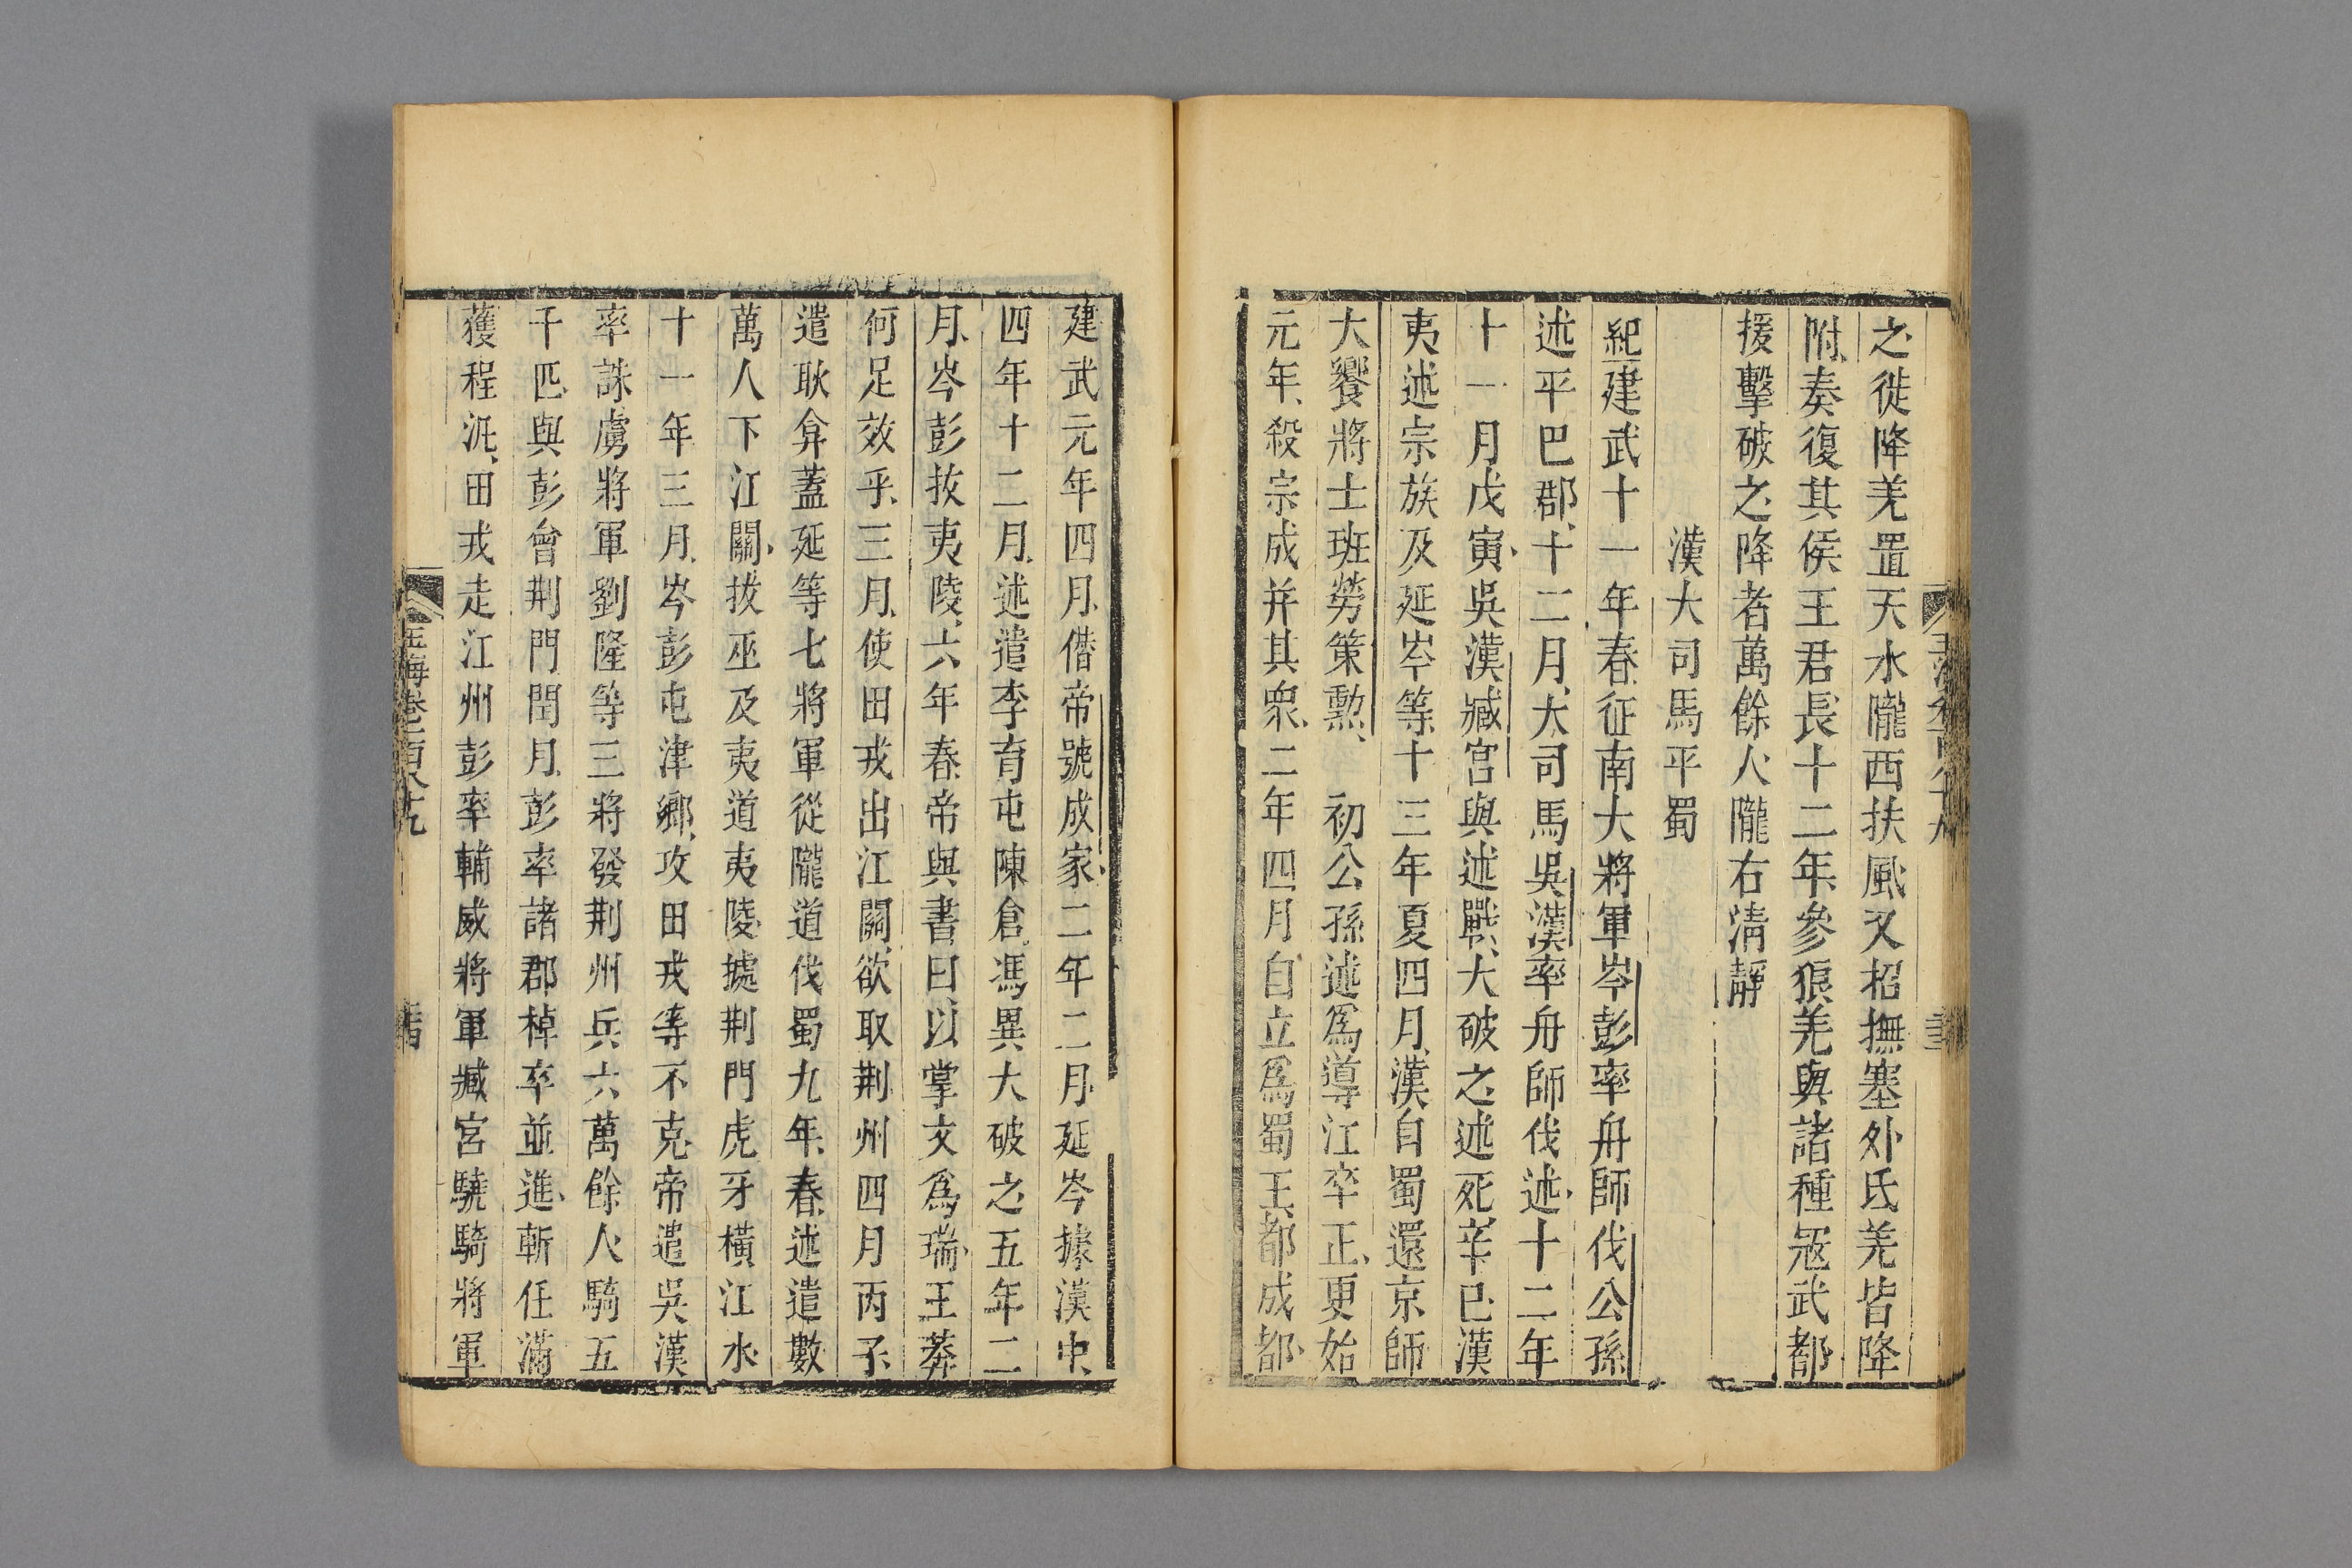 之徙降羌置天水隴西扶風又招撫塞外氐羌皆降
附奏復其侯王君長十二年參狼羌與諸種寇武都
援擊破之降者萬餘人隴右清靜
漢大司馬平蜀
紀建武十一年春征南大將軍岑彭率舟師伐公孫
述平巴郡十二月大司馬吳漢率舟師伐述十二年
十一月戊寅吳漢臧宮與述戰大破之述死辛巳漢
夷述宗族及延岑等十三年夏四月漢自蜀還京師
大饗將士班勞策勲 初公孫述爲導江卒正更始
元年殺宗成并其衆二年四月自立爲蜀王都成都
建武元年四月僣帝號成家二年二月延岑據漢中
四年十二月述遣李育屯陳倉馮異大破之五年二
月岑彭拔夷陵六年春帝與書曰以掌文爲瑞王莽
何足效乎三月使田戎出江關欲取荆州四月丙子
遣耿弇蓋延等七將軍從隴道伐蜀九年春述遣數
萬人下江關拔巫及夷道夷陵據荆門虎牙橫江水
十一年三月岑彭屯津鄉攻田戎等不克帝遣吳漢
率誅虜將軍劉隆等三將發荆州兵六萬餘人騎五
千匹與彭會荆門閏月彭率諸郡棹卒並進斬任滿
獲程汎田戎走江州彭率輔威將軍臧宮驍騎將軍
玉海卷一百八十九